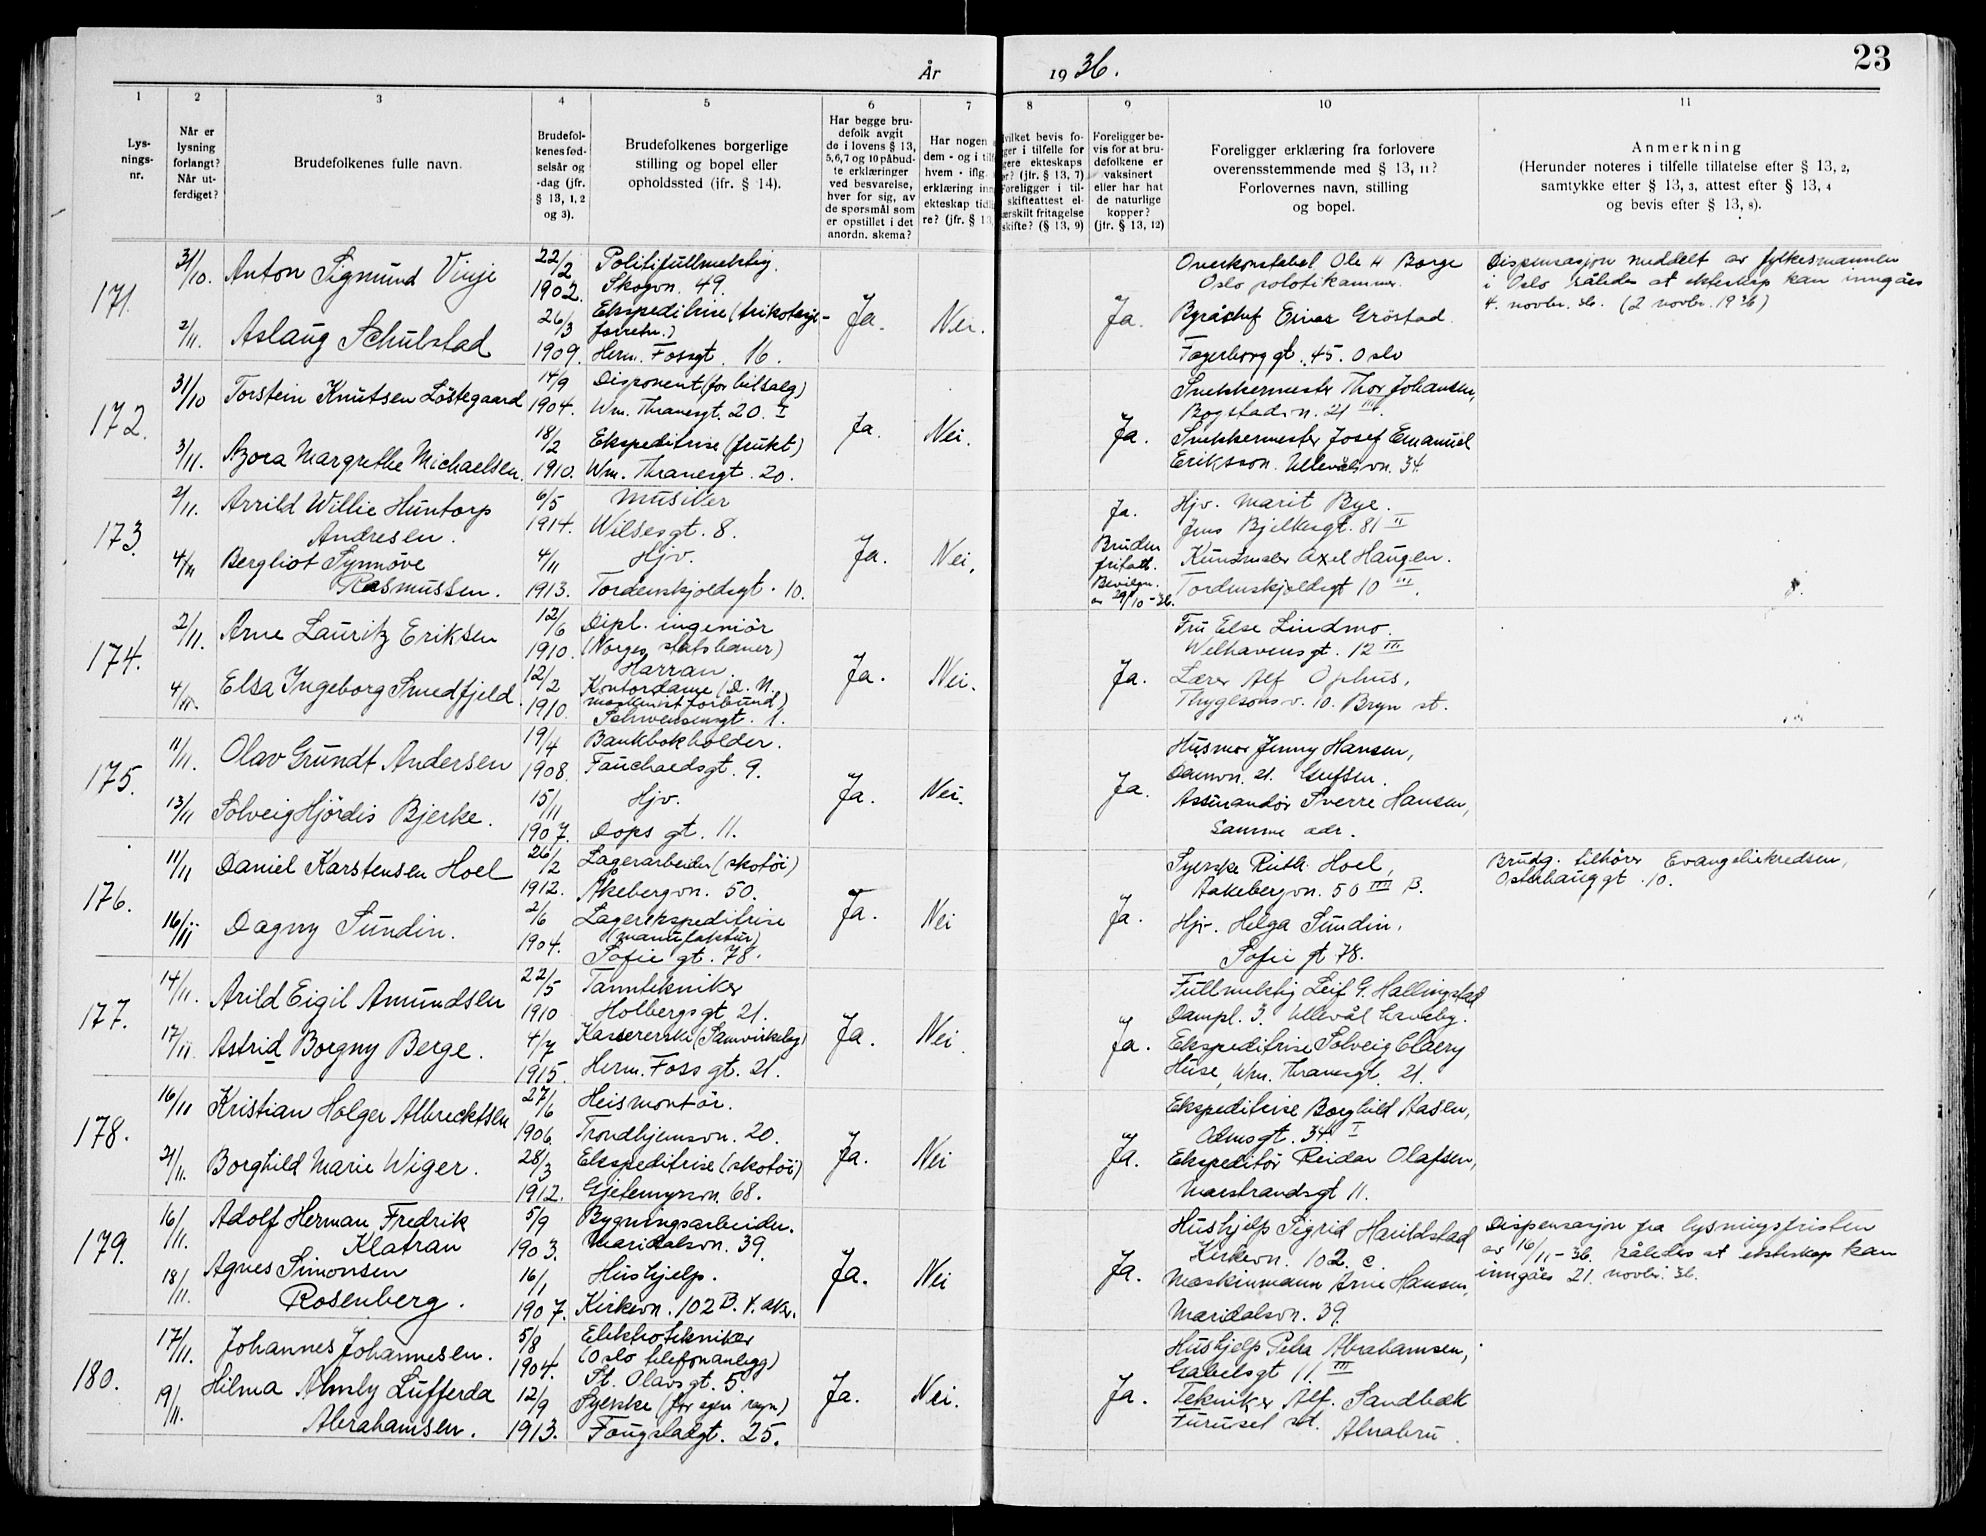 23
År 1936.
1 2 3 4 5 6 7 8 9 10 11
Lysningsnr.
Når er lysning forlangt? Når utferdiget?
Brudefolkenes fulle navn.
Brudefolkenes fødselsår og -dag (jfr. § 13, 1, 2 og 3).
Brudefolkenes borgerlige stilling og bopel eller opholdssted (jfr. § 14).
Har begge brudefolk avgitt de i lovens § 13, 5,6,7 og 10 påbudte erklæringer ved besvarelse, hver for sig, av de spørsmål som er opstillet i det anordn. skema?
Har nogen
dem - og i tilf
hvem - iflg.
erklæring inn
ekteskap tidl
re? (jfr. § 13,
vilket bevis fo-
ger i tilfelle for
gere ekteskaps
or? (jfr. § 13, 7)
Foreligger i til-
skifteattest el-
ærskilt fritagelse
skifte? (§ 13, 9)
Foreligger bevis for at brudefolkene er vaksinert eller har hat de naturlige kopper? (jfr. § 13, 12)
Foreligger erklæring fra forlovere overensstemmende med § 13, 11? Forlovernes navn, stilling og bopel.
Anmerkning
(Herunder noteres i tilfelle tillatelse efter § 13, 2, samtykke efter § 13, 3, attest efter § 13, 4 og bevis efter § 13, 8).
171.
31/10. Anton Sigmund Vinje 22/2 1902. Politifullmektig. Skogvn. 49.
2/11. Aslaug Schulstad 26/3 1909. Ekspeditrise (trikotasje-forretn.) Herm. Fossgt. 16.
Ja. Nei. Ja.
Overkonstabel Ole H Borge
Oslo politikammer.
Byråchef Einar Gröstad.
Fagerborggt. 45. Oslo
Dispensasjon meddelt av fylkesmannen
i Oslo således at ekteskap kan inngåes
4. novbr. 36. (2 novbr. 1936)
172.
31/10 Torstein Knutsen Löstegaard 14/9 1904. Disponent (for bilsalg) Wm. Thranesgt. 20. I
3/11. Bora Margrethe Michaelsen. 18/2 1910. Ekspeditrise (frukt) Wm. Thranesgt. 20.
Ja. Nei. Ja.
Snekkermester Thor Johansen,
Bogstadvn. 21 III.
Snekkermester Josef Emanuel
Eriksson. Ullevålsvn. 34.
173.
2/11. Arrild Willie Huntorp
Andresen. 6/5 1914. Musiker Wilsesgt. 8.
4/11 Bergliot Synnöve
Rasmussen. 4/11 1913. Hjv. Tordenskjoldsgt. 10.
Ja. Nei.
Ja.
Bruden
fritatt.
Bevilgn.
av 29/10-36.
Hjv. Marit Bye.
Jens Bjelkesgt. 81 II
Kunstmaler Axel Haugen.
Tordenskjoldsgt 10 III.
174.
2/11. Arne Lauritz Eriksen 12/6 1910. Dipl. ingeniör (Norges statsbaner) Harran.
4/11. Elsa Ingeborg Smedfjeld. 12/2 1910. Kontordame (D. N. maskinistforbund) Schwensensgt. 1.
Ja. Nei. Ja.
Fru Else Lindmo.
Welhavensgt. 12 III
Lærer Alf Ophus,
Thyglsonsv. 10. Bryn st.
175.
11/11. Olav Grundt Andersen 19/4 1908. Bankbokholder. Fauchaldsgt. 9.
13/11 Solveig Hjördis Bjerke. 15/11 1907. Hjv. Dops gt. 11.
Ja. Nei. Ja.
Husmor Jenny Hansen,
Damvn. 21. Grefsen.
Assurandör Sverre Hansen,
Samme adr.
176.
11/11 Daniel Karstensen Hoel 26/2 1912. Lagerarbeider (skotöi) Åkebergvn. 50.
16/11 Dagny Sundin. 2/6 1904. Lagerekspeditrise (manufaktur) Sofie gt. 78.
Ja. Nei Ja.
Syerske Ruth Hoel,
Aakebergvn. 50 III B.
Hjv. Helga Sundin,
Sofie gt 78.
Brudg. tilhörer Evangeliekredsen,
Osterhausgt. 10.
177.
14/11. Arild Eigil Amundsen 22/5 1910 Tanntekniker Holbergsgt. 21.
17/11 Astrid Borgny Berge. 4/7 1915. Kassererske (Samvirkelag) Herm. Foss gt. 21.
Ja. Nei. Ja.
Fullmektig Leif G. Hallingstad
Dampl. 3. Ullevål haveby.
Ekspeditrise Solveig Claery
Huse, Wm. Thranesgt. 21.
178.
16/11 Kristian Holger Albrecktsen 27/6 1906. Heismontör. Trondhjemsvn. 20.
21/11. Borghild Marie Wiger. 28/3 1912. Ekspeditrise (skotöi) Gjetemyrsvn. 68.
Ja. Nei Ja.
Ekspeditrise Borghild Aasen,
Odinsgt. 34 I
Ekspeditör Reidar Olafsen,
Marstrandsgt 11.
179.
16/11. Adolf Herman Fredrik
Klatran 5/9 1903. Bygningsarbeider. Maridalsvn. 39.
18/11. Agnes Simonsen
Rosenberg. 16/1 1907. Hushjelp. Kirkevn. 102 B. V. aker.
Ja. Nei Ja.
Hushjelp Sigrid Harildstad
Kirkevn. 102 c.
Maskinmann Arne Hansen,
Maridalsvn. 39.
Dispensasjon fra lysningsfristen
av 16/11-36. således at ekteskap kan
inngåes 21. novbr. 36.
180.
17/11. Johannes Johannesen. 5/8 1904. Elektrotekniker (Oslo telefonanlegg) St. Olavsgt. 5.
19/11. Hilma Almly Lufferda
Abrahamsen. 12/9 1913. Syerske (for egen regn) Fougstadgt. 25.
Ja. Nei. Ja.
Hushjelp Petra Abrahamsen,
Gabelsgt 11. III
Tekniker Alf. Sandbæk
Furuset st. Alnabru.